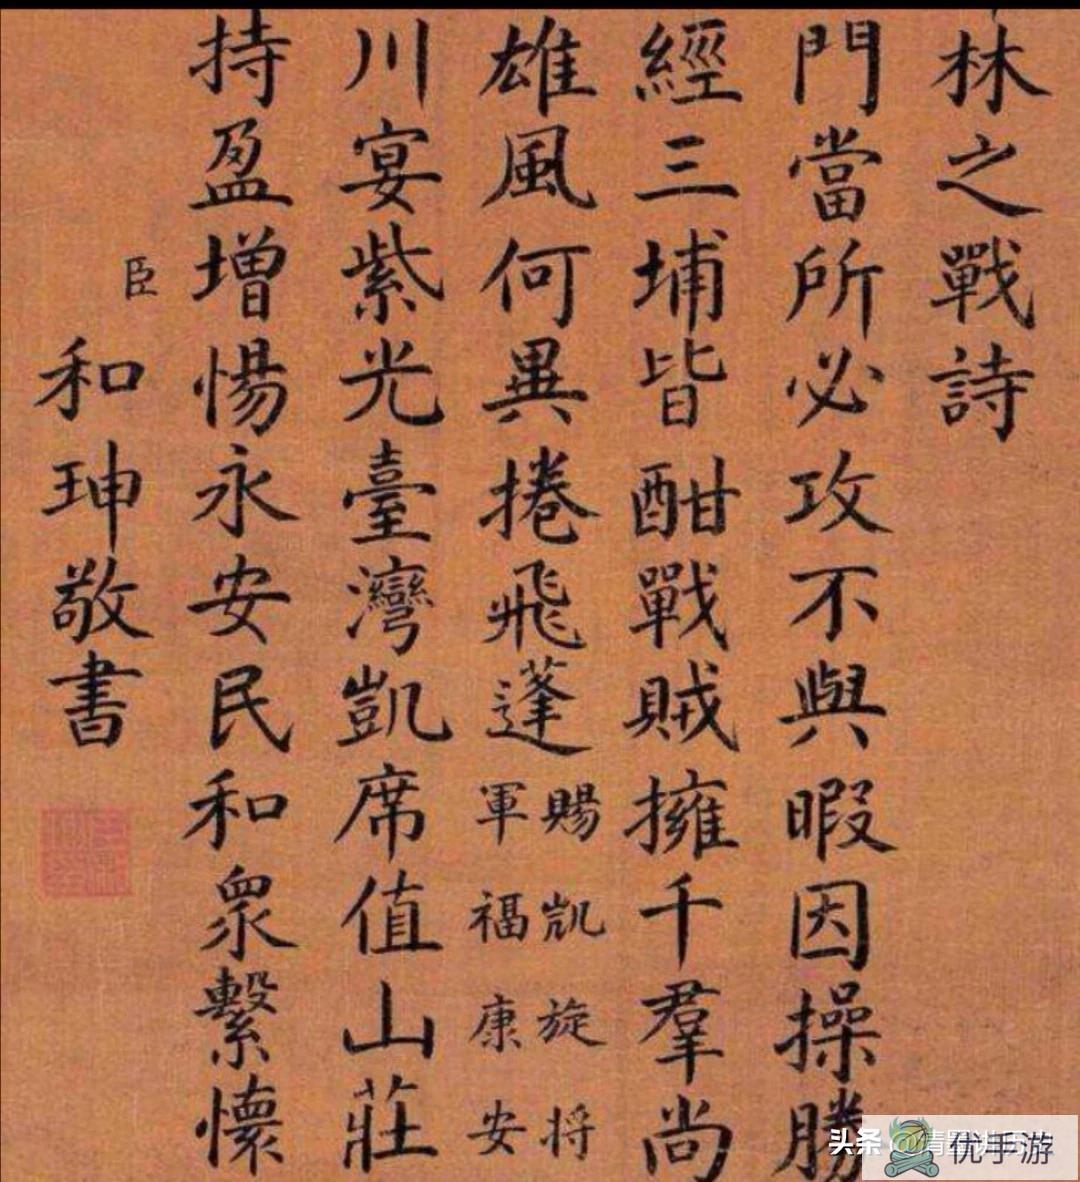 林之戰詩
門當所必攻不與暇因操勝
經三埔皆酣戰賊擁千羣尚
雄風何異捲飛蓬
賜凱旋将
軍福康安
川宴紫光臺灣凱席值山莊
持盈增惕永安民和衆繫懷
臣
和珅敬書
头条
优手游